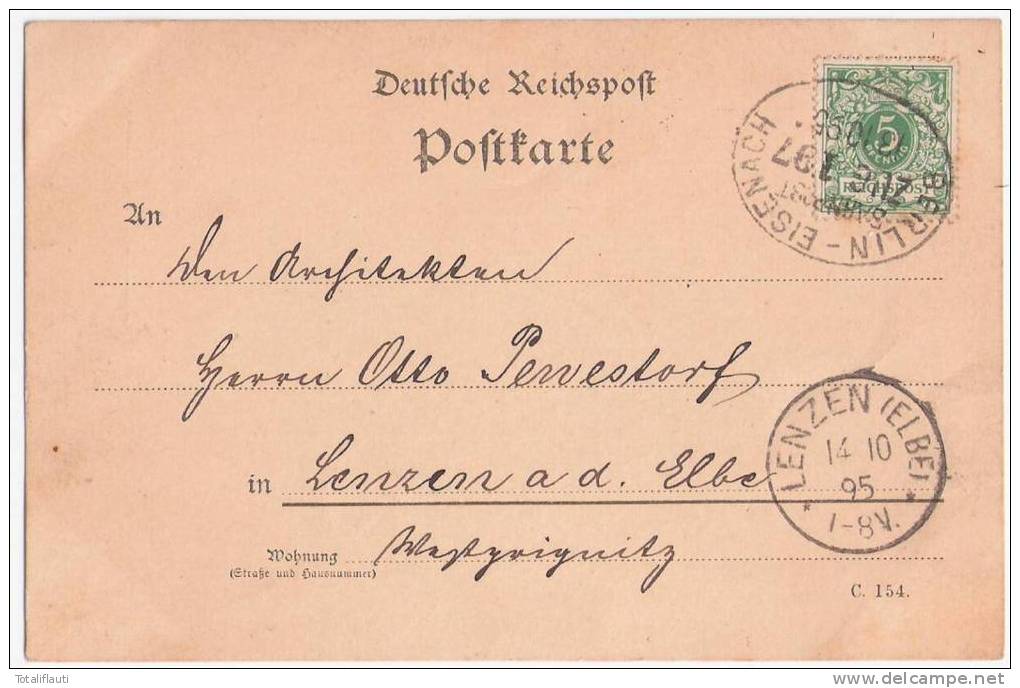 Deutsche Reichspost
Postkarte
An
Den Architekten
Herrn Otto Pewestorf
in Lenzen a d. Elbe
Westprignitz
Wohnung
(Straße und Hausnummer)
C. 154.
5
PFENNIG
REICHSPOST
BERLIN - EISENACH
BAHNPOST
LENZEN (ELBE)
14 10
95
* 7-8V. *
Totaliflauti
www.delcampe.net